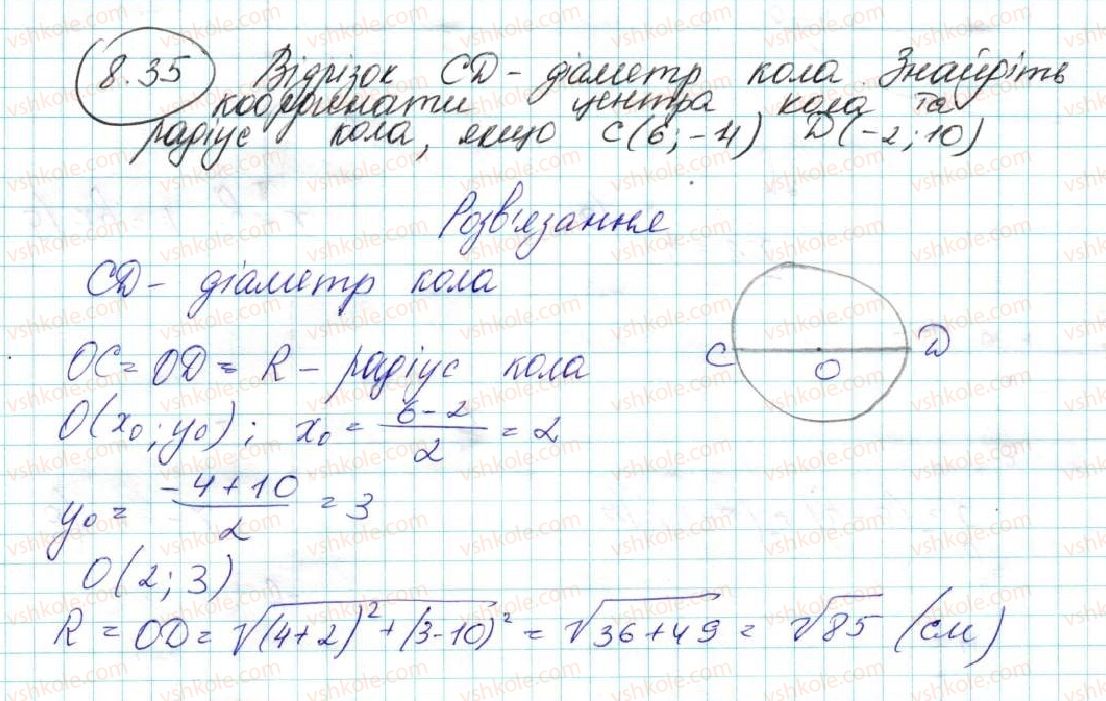 8.35 Відрізок CD - діаметр кола. Знайдіть
координати центра кола та
радіус кола, якщо C(6;-4) D(-2;10)
Розв'язання
CD - діаметр кола
OC = OD = R - радіус кола
O(x₀;y₀); x₀ = (6-2)/2 = 2
y₀ = (-4+10)/2 = 3
O(2;3)
R = OD = √((4+2)²+(3-10)²) = √(36+49) = √85 (см)
C O D
vshkole.com